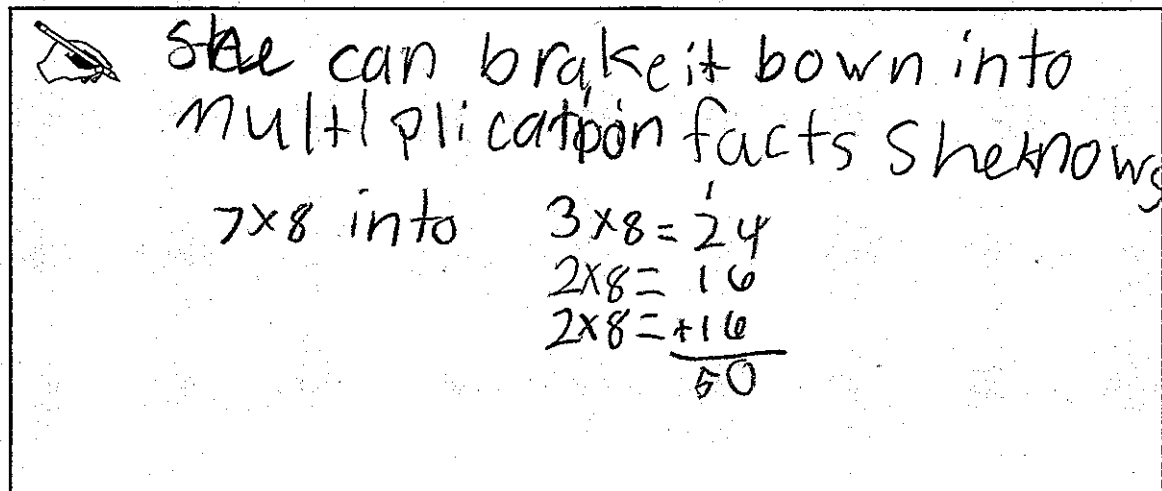 She can brake it bown into
multiplication facts she knows
7x8 into 3x8 = 24
2x8 = 16
2x8 = +16
50